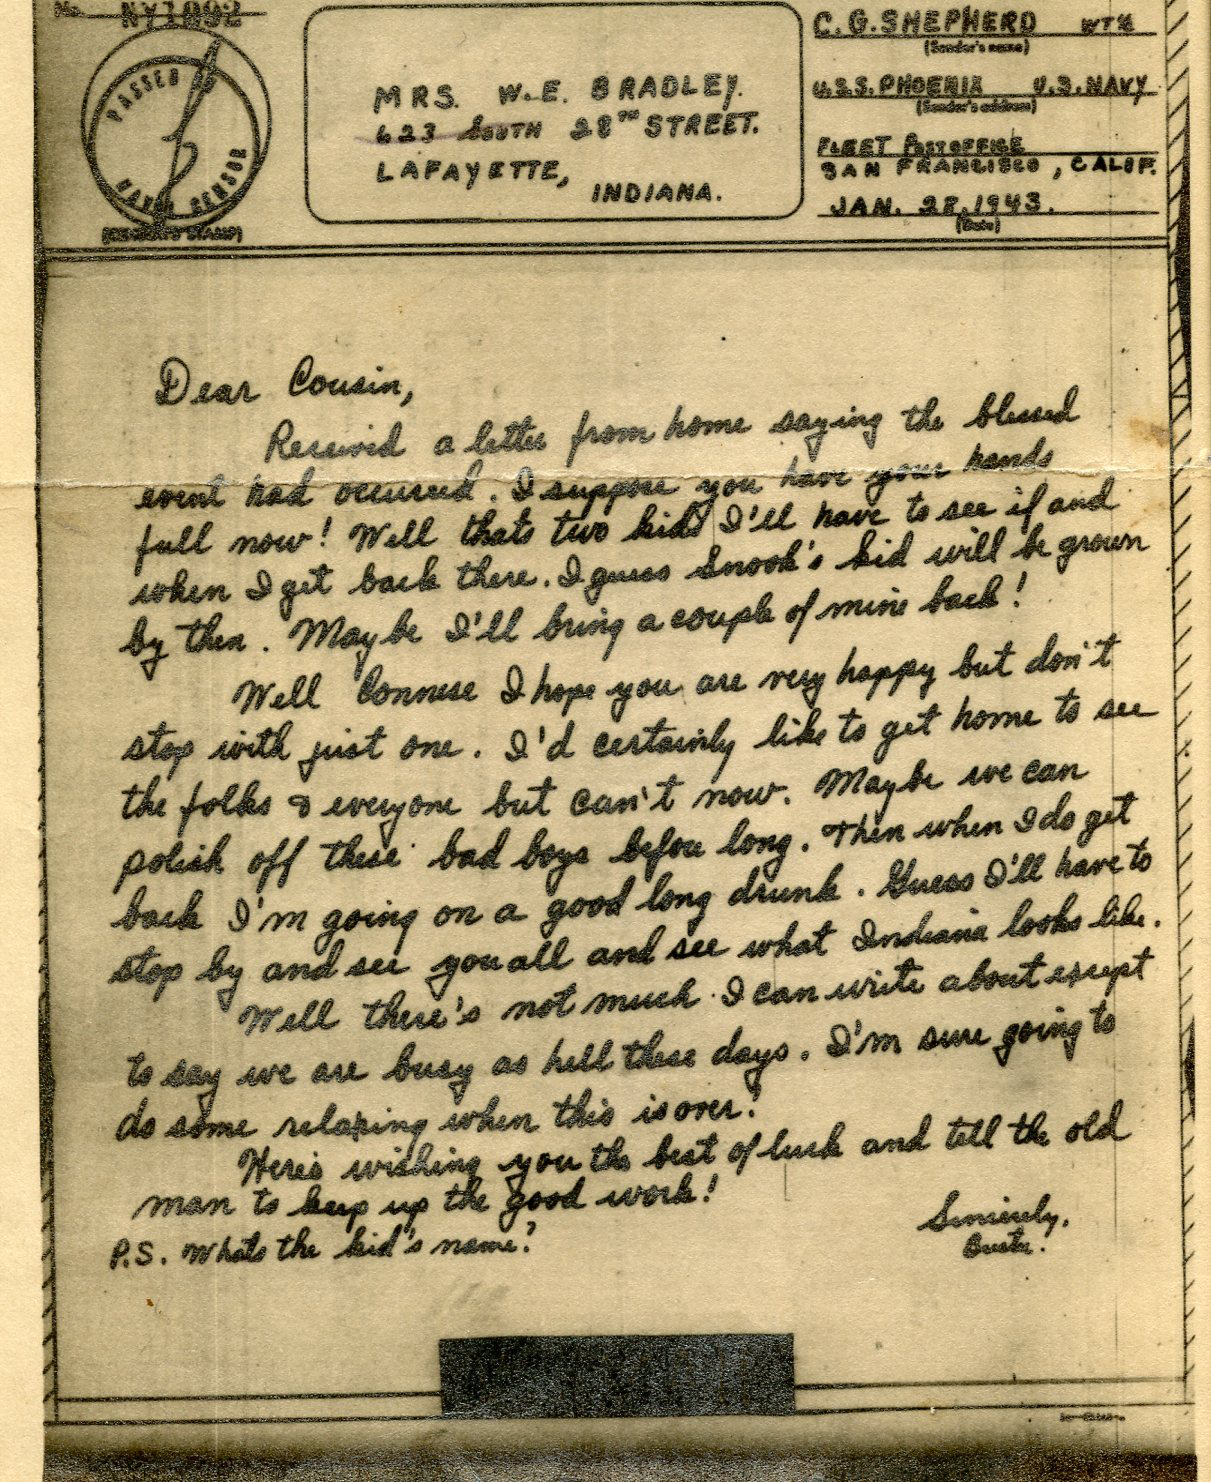 No. NY1892
PASSED
NAVAL CENSOR
(CENSOR'S STAMP)
MRS. W.E. BRADLEY.
623 SOUTH 28TH STREET.
LAFAYETTE,
INDIANA.
C.G. SHEPHERD
(Sender's name)
U.S.S. PHOENIX U.S. NAVY
(Sender's address)
FLEET POSTOFFICE
SAN FRANCISCO, CALIF.
JAN. 28, 1943.
(Date)
Dear Cousin,
Received a letter from home saying the blessed
event had occurred. I suppose you have your hands
full now! Well thats two kids I'll have to see if and
when I get back there. I guess Snook's kid will be grown
by then. Maybe I'll bring a couple of mine back!
Well Connese I hope you are very happy but don't
stop with just one. I'd certainly like to get home to see
the folks & everyone but can't now. Maybe we can
polish off these bad boys before long. Then when I do get
back I'm going on a good long drunk. Guess I'll have to
stop by and see you all and see what Indiana looks like.
Well there's not much I can write about except
to say we are busy as hell these days. I'm sure going to
do some relaxing when this is over!
Here's wishing you the best of luck and tell the old
man to keep up the good work!
Sincerely,
P.S. Whats the kid's name?